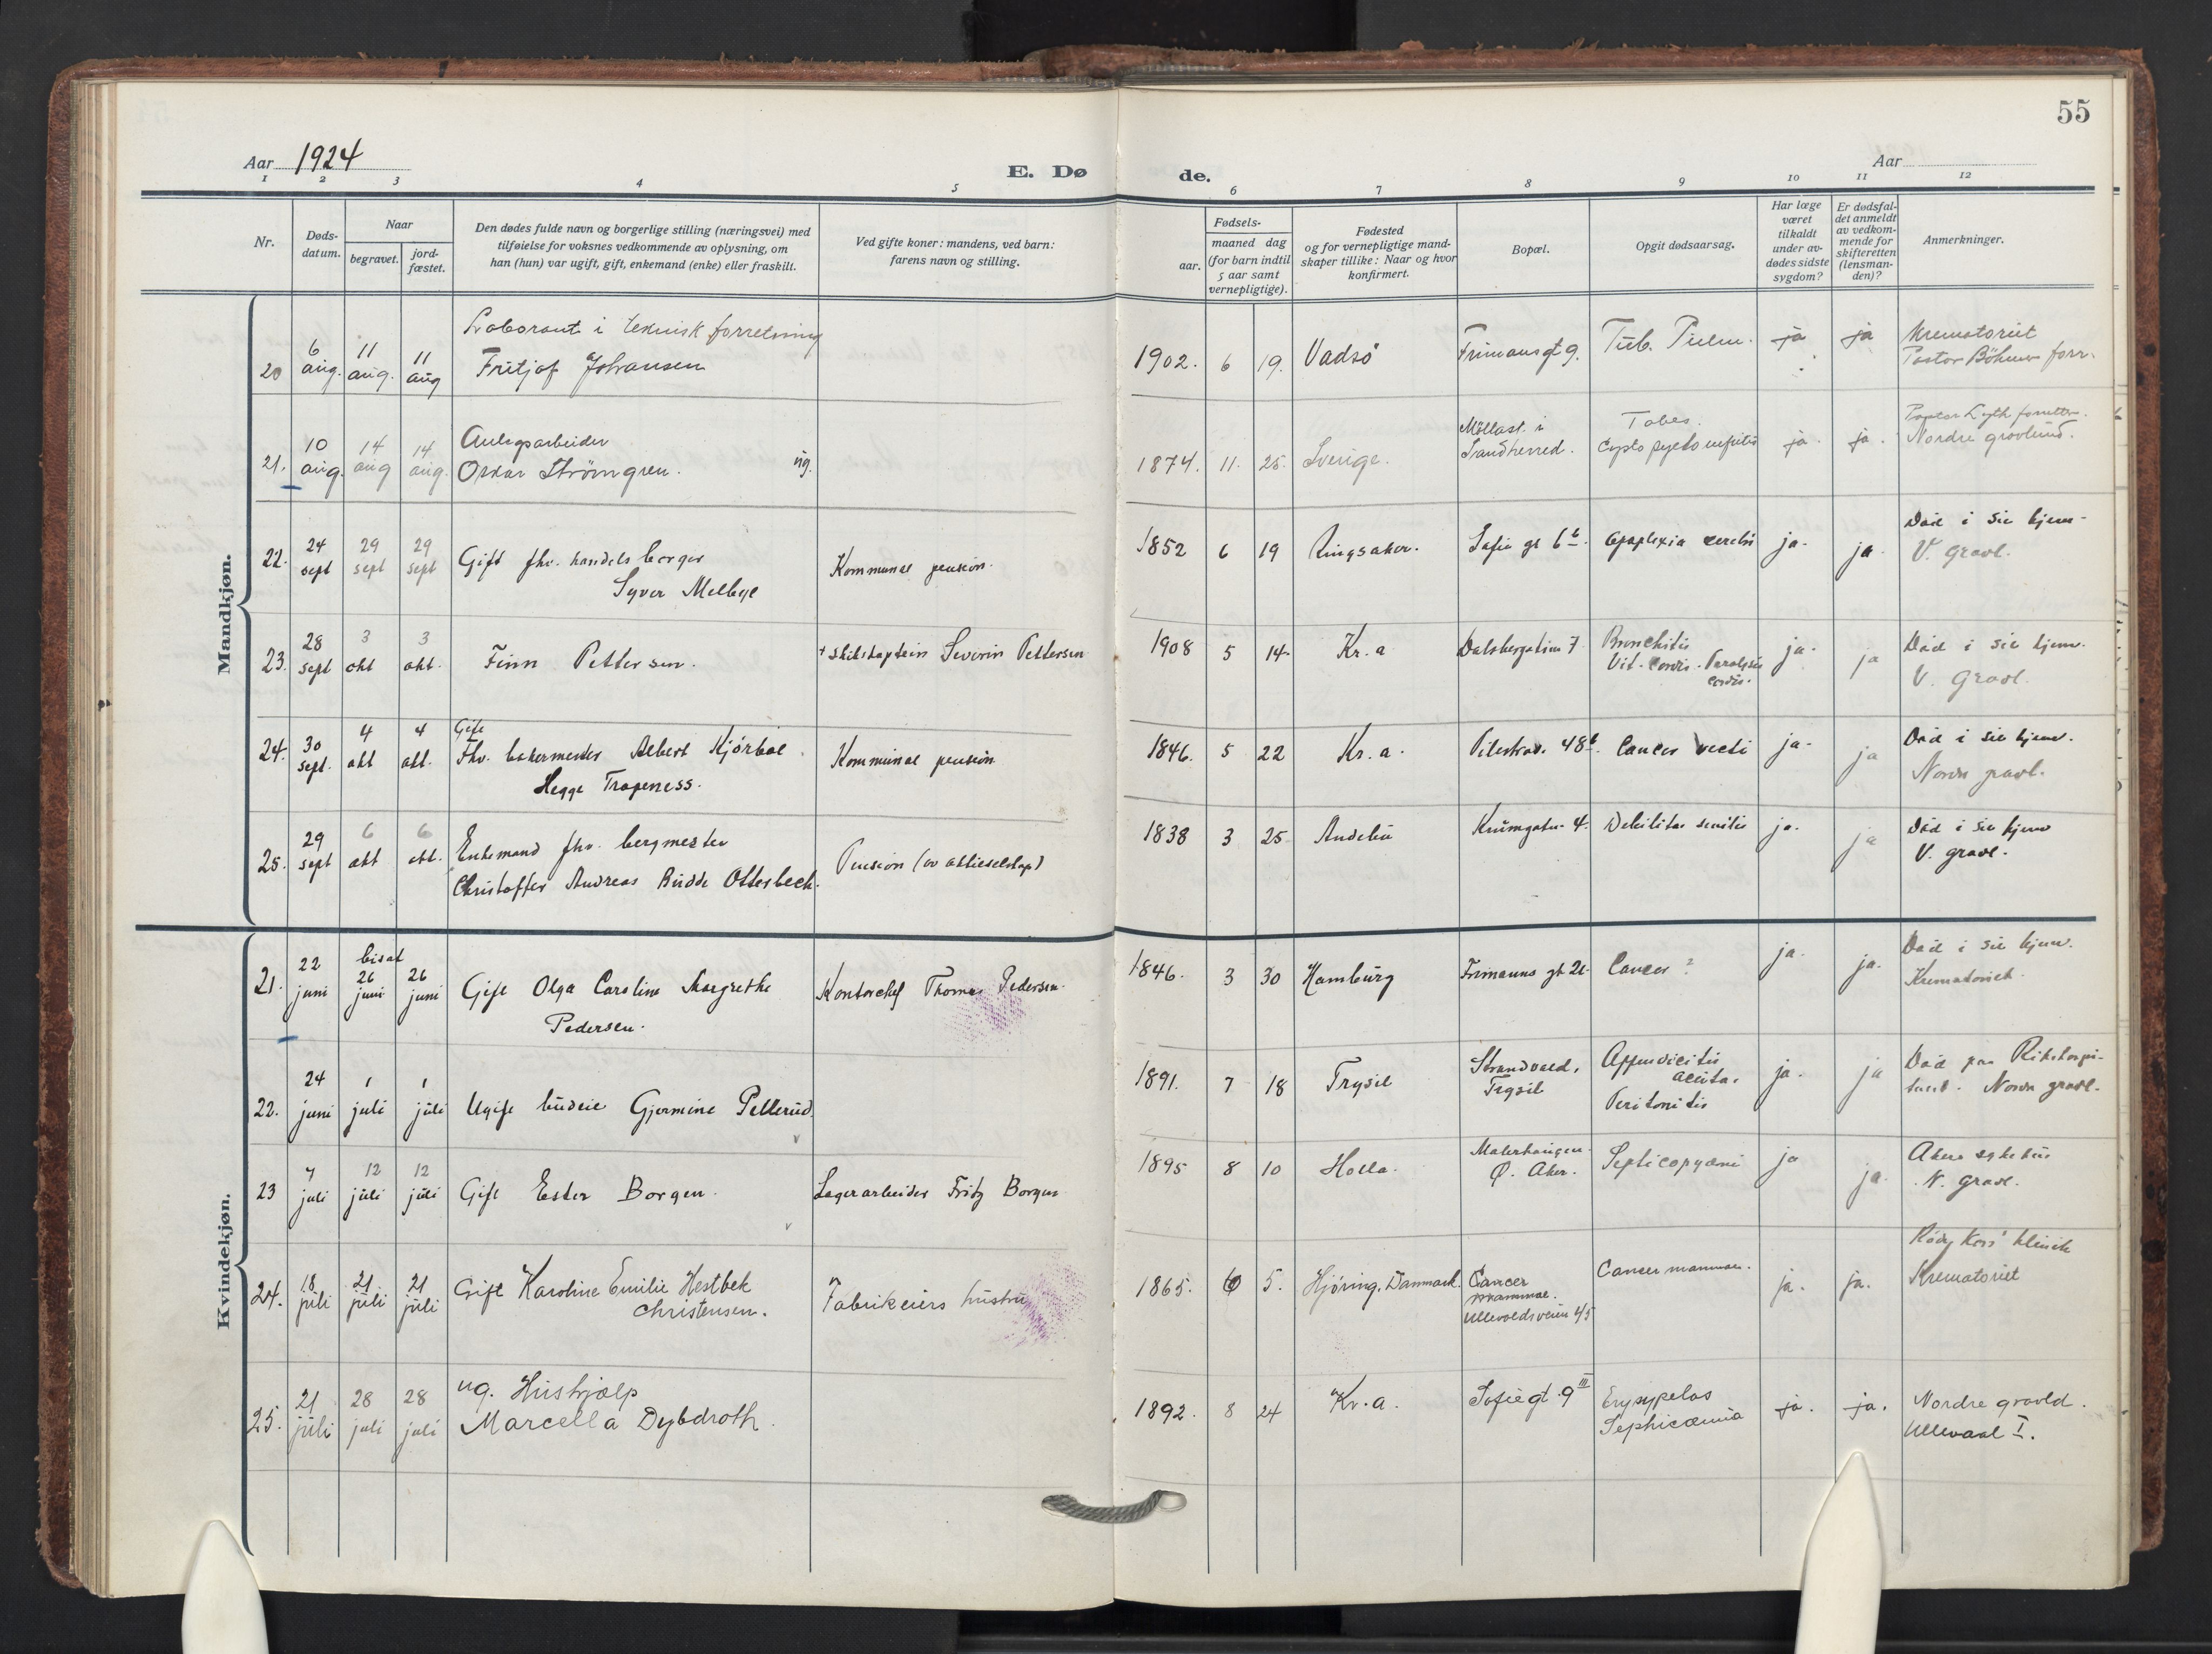 55
Aar 1924
E. Dø de.
Aar
1 2 3 4 5 6 7 8 9 10 11 12
Nr.
Døds-
datum.
Naar
begravet.
jord-
fæstet.
Den dødes fulde navn og borgerlige stilling (næringsvei) med
tilføielse for voksnes vedkommende av oplysning, om
han (hun) var ugift, gift, enkemand (enke) eller fraskilt.
Ved gifte koner: mandens, ved barn:
farens navn og stilling.
Fødsels-
aar.
maaned dag
(for barn indtil
5 aar samt
vernepligtige).
Fødested
og for vernepligtige mand-
skaper tillike: Naar og hvor
konfirmert.
Bopæl.
Opgit dødsaarsag.
Har læge
været
tilkaldt
under av-
dødes sidste
sygdom?
Er dødsfal-
det anmeldt
av vedkom-
mende for
skifteretten
(lensman-
den)?
Anmerkninger.
Mandkjøn.
20 6 aug. 11 aug. 11 aug
Laborant i teknisk forretning
Fritjof Johansen
1902. 6 19. Vadsø Frimansgt 9. Tub. Pulm. ja ja
Krematoriet
Pastor Böhmer forr.
21. 10 aug. 14 aug 14 aug.
Anlegsarbeider
Oskar Strömgren. ug.
1874. 11. 25. Sverige.
Möllast. i
Sandherred.
Tabes.
Cysto pyelo nefritis ja. ja.
Pastor Lyth. forrettn.
Nordre gravlund.
22. 24 sept 29 sept 29 sept
Gift fhv. handelsborger
Syver Melbye
Kommunal pension.
1852 6 19 Ringsaker. Sofie gt 6 b. Apoplexia cerebri ja. ja.
Død i sit hjem.
V. gravl.
23. 28 sept 3 okt 3 okt.
Finn Pettersen.
† skibskaptein Severin Pettersen
1908 5 14. Kr.a Dalsbergstien 7
Bronchitis
Vit. cordis. Paralysis
cordis.
ja. ja
Død i sit hjem.
V. Gravl.
24. 30 sept. 4 okt 4 okt.
Gift
Fhv. bakermester Albert Kjörboe
Hegge Trageness.
Kommunal pension
1846. 5 22 Kr.a. Pilestræd. 48 b. Cancer recti ja. ja
Død i sit hjem.
Nordre gravl.
25. 29 sept 6 okt 6 okt.
Enkemand fhv. bergmester
Christoffer Andreas Budde Otterbech.
Pension (av aktieselskap)
1838 3 25 Andebu Krumgaten 4. Debilitas senilis ja. ja
Død i sit hjem
V. gravl.
Kvindekjøn.
21. 22 juni bisat 26 juni 26 juni
Gift Olga Caroline Margrethe
Pedersen.
Kontorchef Thomas Pedersen.
1846. 3 30 Hamburg Frimanns gt 21. Cancer? ja. ja.
Død i sit hjem.
Krematoriet.
22. 24 juni 1 juli 1 juli
Ugift budeie Gjermine Pellerud
1891. 7 18 Trysil
Strandvold,
Trysil
Appendicitis
acuta.
Peritonitis
ja. ja
Død paa Rikshospi-
talet. Nordre gravl.
23 7 juli 12 juli 12 juli
Gift Ester Borgen.
Lagerarbeider Fritz Borgen
1895 8 10 Holla.
Malerhaugen
Ø. Aker.
Septicopyæmi ja ja.
Akers sykehus
N. gravl.
24. 18 juli 21 juli 21 juli
Gift Karoline Emilie Hestbek
Christensen.
Fabrikeiers hustru
1865. 6 5. Hjöring, Danmark.
Cancer
mammae.
Ullevoldsveien 45
Cancer mammae.
ja. ja.
Röde Kors' klinik
Krematoriet
25. 21 juli 28 juli 28 juli
ug. Hushjælp
Marcella Dybdroth.
1892. 8 24 Kr.a. Sofiegt. 9 III
Erysypelas
Sephicæmia
ja. ja.
Nordre gravld.
Ullevaal I.